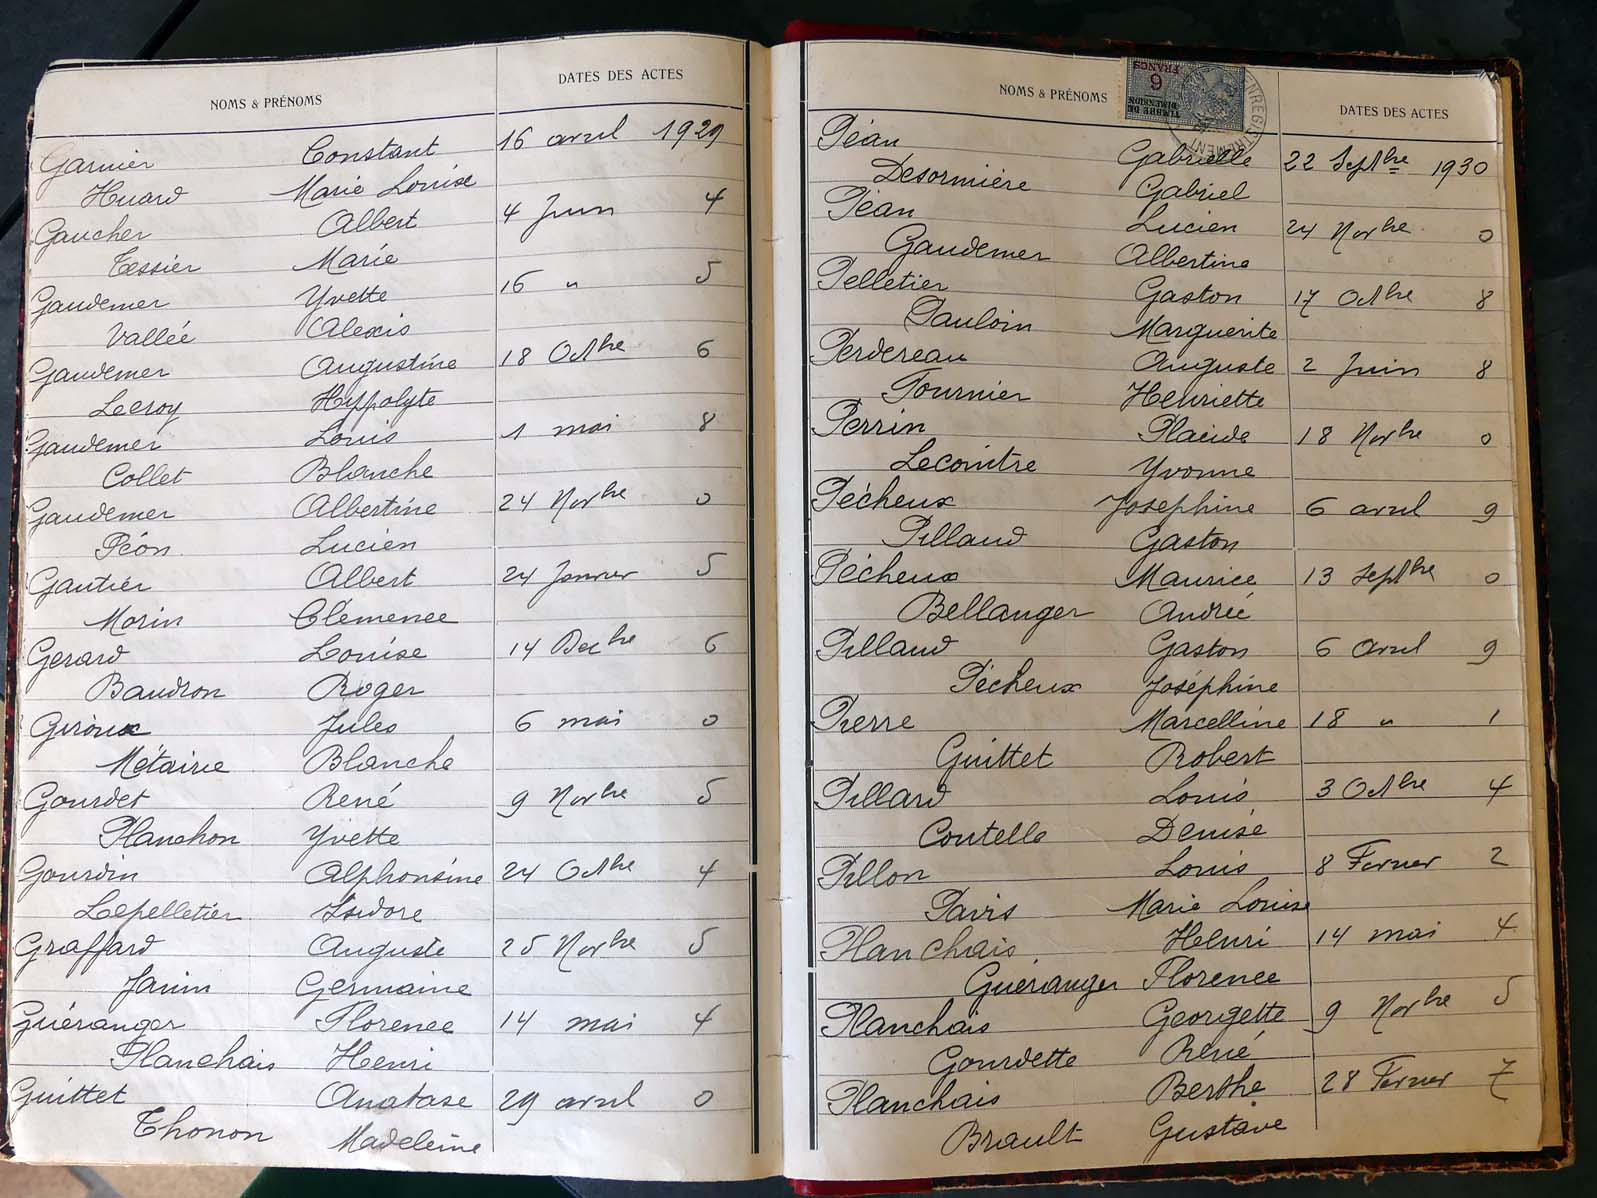 NOMS & PRÉNOMS DATES DES ACTES
Garnier Constant 16 avril 1929
Huard Marie Louise
Gaucher Albert 4 Juin 4
Tessier Marie
Gaudemer Yvette 16 " 5
Vallée Alexis
Gaudemer Augustine 18 Octbre 6
Leeroy Hippolyte
Gaudemer Louis 1 mai 8
Collet Blanche
Gaudemer Albertine 24 Novbre 0
Péon Lucien
Gautier Albert 24 Janvier 5
Morin Clémence
Gerard Louise 14 Decbre 6
Baudron Roger
Giroux Jules 6 mai 0
Métairie Blanche
Gourdet René 9 Novbre 5
Planchon Yvette
Gourdin Alphonsine 24 Octbre 4
Lepelletier Isidore
Graffard Auguste 25 Novbre 5
Janin Germaine
Guéranger Florence 14 mai 4
Planchais Henri
Guittet Anatase 29 avril 0
Thonon Madeleine
NOMS & PRÉNOMS DATES DES ACTES
TIMBRE DE DIMENSION
6 FRANCS
ENREGISTREMENT
Péan Gabrielle 22 Septbre 1930
Desormière Gabriel
Péan Lucien 24 Novbre 0
Gaudemer Albertine
Pelletier Gaston 17 Octbre 8
Pauloin Marguerite
Perdereau Auguste 2 Juin 8
Fournier Henriette
Perrin Placide 18 Novbre 0
Lecointre Yvonne
Pécheux Joséphine 6 avril 9
Pillaud Gaston
Pécheux Maurice 13 Septbre 0
Bellanger Andrée
Pillaud Gaston 6 avril 9
Pécheux Joséphine
Pierre Marcelline 18 " 1
Guittet Robert
Pillard Louis 3 Octbre 4
Coutelle Denise
Pillon Louis 8 Fevrier 2
Pavis Marie Louise
Planchais Henri 14 mai 4
Guéranger Florence
Planchais Georgette 9 Novbre 5
Gourdette René
Planchais Berthe 28 Fevrier 7
Brault Gustave